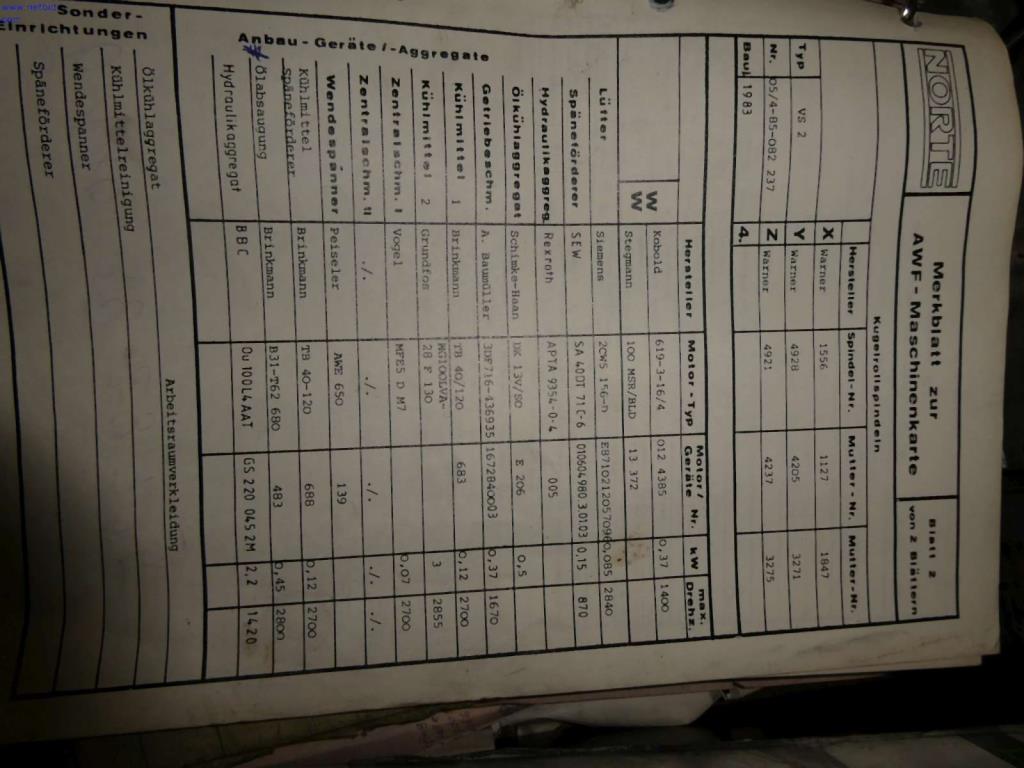 www.netbid.com
NORTE
Merkblatt zur
AWF-Maschinenkarte
Blatt 2
von 2 Blättern
Kugelrollspindeln
Typ VS 2
Nr. 05/4-85-082 237
Bauj. 1983
Hersteller Spindel-Nr. Mutter-Nr. Mutter-Nr.
X Warner 1556 1127 1847
Y Warner 4928 4205 3271
Z Warner 4921 4237 3275
4.
Hersteller Motor-Typ Motor/Geräte Nr. kW max. Drehz.
W Kobold 619-3-16/4 012 4385 0,37 1400
W Stegmann 100 MSR/BLD 13 372
Anbau-Geräte/-Aggregate
Lütter Siemens 2840
Späneförderer SEW SA 40DT 71C-6 010604980 3.01.03 0,15 870
Hydraulikaggreg. Rexroth APTA 9354-0-4 005
Ölkühlaggregat Schimke-Haan DK 13V/SO E 206 0,5
Getriebeschm. A. Baumüller 3DF716-436935 1672840003 0,37 1670
Kühlmittel 1 Brinkmann TB 40/120 683 0,12 2700
Kühlmittel 2 Grundfos MG100LVA-28 F 130 3 2855
Zentralschm. I Vogel MFE5 D M7 0,07 2700
Zentralschm. II ./. ./. ./. ./. ./.
Wendespanner Peiseler AWE 650 139
Kühlmittel Späneförderer Brinkmann TB 40-120 688 0,12 2700
Ölabsaugung Brinkmann B31-T62 680 483 0,45 2800
Hydraulikaggregat BBC QU 100L4 AAT GS 220 045 2M 2,2 1420
Sonder-
Einrichtungen
Ölkühlaggregat Arbeitsraumverkleidung
Kühlmittelreinigung
Wendespanner
Späneförderer